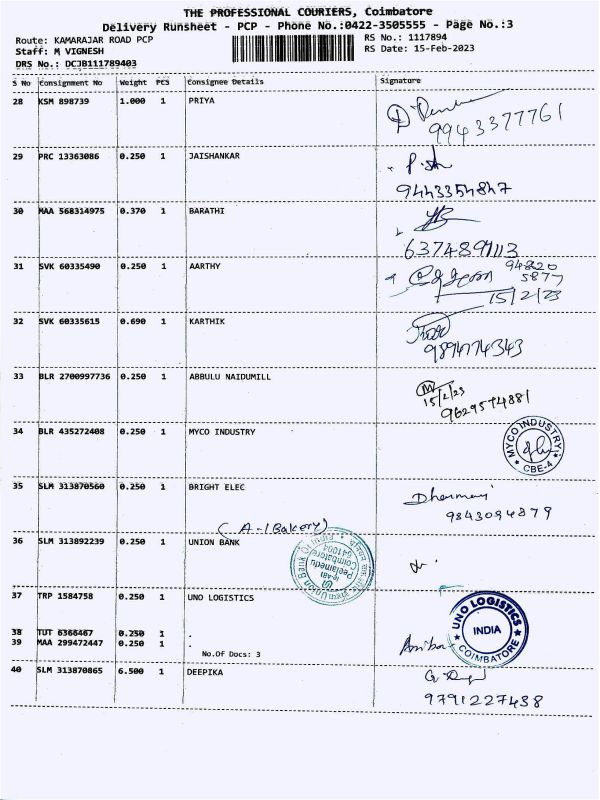 THE PROFESSIONAL COURIERS, Coimbatore
Delivery Runsheet - PCP - Phone No.:0422-3505555 - Page No.:3
Route: KAMARAJAR ROAD PCP
Staff: M VIGNESH
DRS No.: DCJB111789403
RS No.: 1117894
RS Date: 15-Feb-2023
S No Consignment No Weight PCS Consignee Details Signature
28 KSM 898739 1.000 1 PRIYA
9943377761
29 PRC 13363086 0.250 1 JAISHANKAR
9443354847
30 MAA 568314975 0.370 1 BARATHI
31 SVK 60335490 0.250 1 AARTHY
94820
5877
15/2/23
32 SVK 60335615 0.690 1 KARTHIK
33 BLR 2700997736 0.250 1 ABBULU NAIDUMILL
15/2/23
34 BLR 435272408 0.250 1 MYCO INDUSTRY
MYCO INDUSTRY
CBE-4
35 SLM 313870560 0.250 1 BRIGHT ELEC
9843094879
(A-1 Bakery)
36 SLM 313892239 0.250 1 UNION BANK
Union Bank Of India
Peelamedu
Coimbatore
641004
37 TRP 1584758 0.250 1 UNO LOGISTICS
UNO LOGISTICS
INDIA
COIMBATORE
38 TUT 6366467 0.250 1 .
39 MAA 299472447 0.250 1 .
No.Of Docs: 3
40 SLM 313870865 6.500 1 DEEPIKA
9791227438